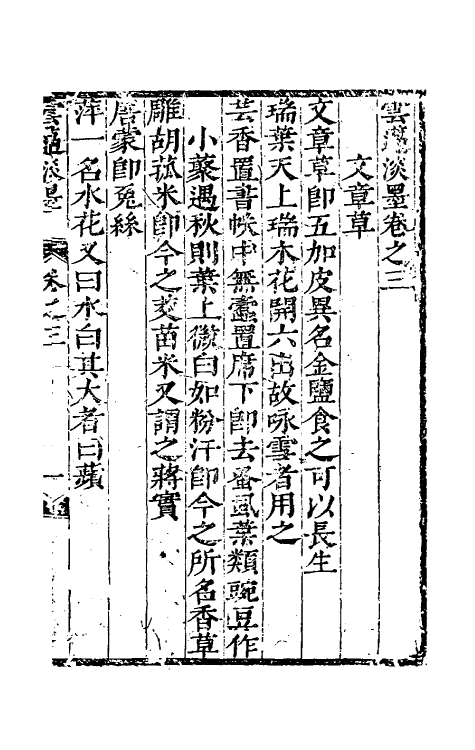 雲薖淡墨卷之三
文章草
文章草即五加皮異名金鹽食之可以長生
瑞葉天上瑞木花開六出故咏雪者用之
芸香置書帙中無蠹置席下即去蚤虱葉類豌豆作
小藂遇秋則葉上微白如粉汗即今之所名香草
雕胡菰米即今之茭苗米又謂之蔣實
唐蒙即兔絲
萍一名水花又曰水白其大者曰蘋
雲薖淡墨 卷之三 一